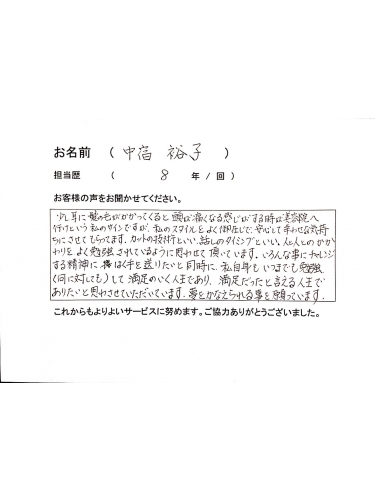 お名前 （ 中宿 裕子 ）
担当歴 （ 8 年 / 回 ）
お客様の声をお聞かせてください。
が耳に髪の毛がかかってくると頭が痛くなる感じがする時は美容院へ
行けという私のサインですが、私のスタイルをよく御存じで、安心して幸わせな気持
ちにさせてもらってます。カットの技術といい、話しのタイミングといい、人と人とのかか
わりをよく勉強されているように思わせて頂いています。いろんな事にチャレンジ
する精神に、横はく手を送りたいと同時に、私自身もいつまでも勉強
（何に対しても）して満足のいく人生であり、満足だったと言える人生で
ありたいと思わさせていただいています。夢をかなえられる事を願っています。
これからもよりよいサービスに努めます。ご協力ありがとうございました。